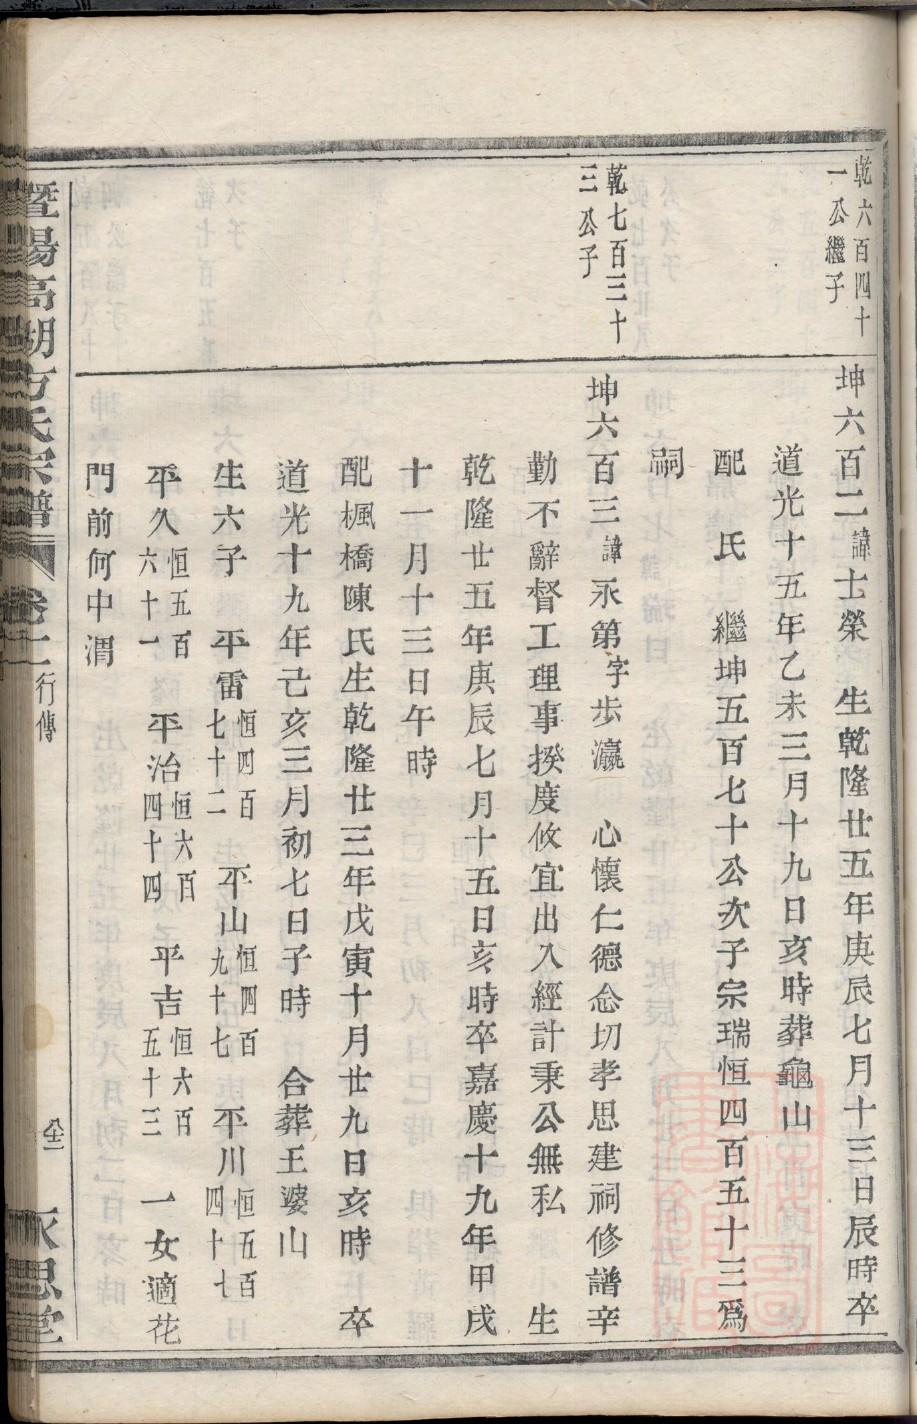 乾六百四十
一公繼子
坤六百二諱士榮 生乾隆廿五年庚辰七月十三日辰時卒
道光十五年乙未三月十九日亥時葬龜山
配 氏 繼坤五百七十公次子宗瑞恒四百五十三爲
嗣
乾七百三十
三公子
坤六百三諱永第字步瀛 心懷仁德念切孝思建祠修譜辛
勤不辭督工理事揆度攸宜出入經計秉公無私 生
乾隆廿五年庚辰七月十五日亥時卒嘉慶十九年甲戌
十一月十三日午時
配楓橋陳氏生乾隆廿三年戊寅十月廿九日亥時 卒
道光十九年己亥三月初七日子時 合葬王婆山
生六子 平雷恒四百七十二 平山恒四百九十七 平川恒五百四十七
平久恒五百六十一 平治恒六百四十四 平吉恒六百五十三 一女適花
門前何中渭
暨陽高湖方氏宗譜 卷十二 行傳 永思堂